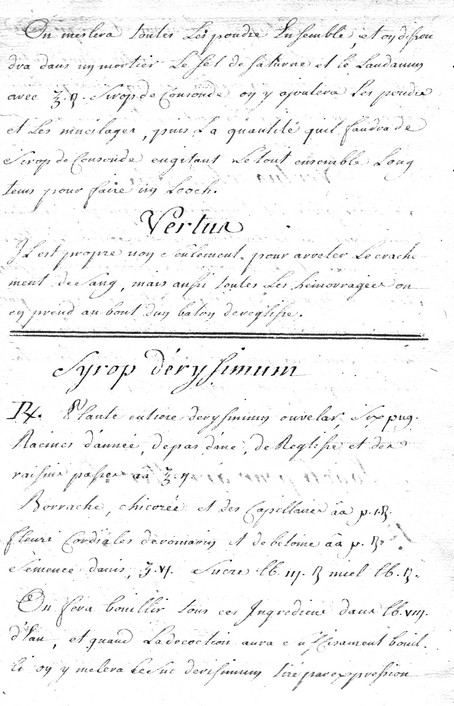 On meslera toutes Les poudre Ensemble, et on dissou
dra dans un mortier Le sel de saturne et le Laudanum
avec ʒ. ß. Sirop de Consoude on y ajoutera Les poudre
et Les mucilages, puis La quantité quil faudra de
Sirop de Consoude en gitant Le tout ensemble Long
tems pour faire un Looch.
Vertus
Il est propre non seulement pour arreter Le crache
ment de sang, mais aussi toutes Les hémorragies on
en prend au bout d'un baton de reglisse.
Syrop d'érysimum
Rx. Plante entiere derysimum ou velar, Six pug.
Racines d'aunée, de pas d'ane, de Reglisse et des
raisins passes aa ʒ. ij
Borrache, chicorée et des Capillaires aa p. i ß.
fleurs Cordiales de romarin et de betoine aa p. ß.
semence danis, ʒ. vj. Sucre lb. iij. ß miel lb. ß.
On fera bouillir tous ces Ingrediens dans lb. viij.
d'Eau, et quand La decoction aura suffisament bouil-
li on y melera Le suc derisimum tiré par expression